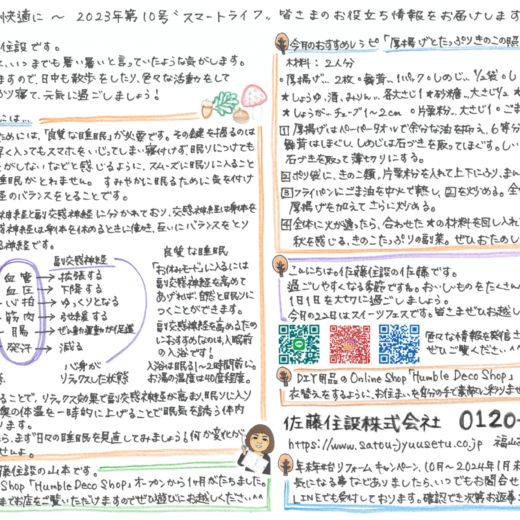 快適に ～ 2023年第10号 〝スマートライフ〟 皆さまのお役立ち情報をお届けします
住設です。
、いつまでも暑い暑いと言っていたような気がします。
ますので、日中も散歩をしたり、色々な活動をして
かり寝て、元気に過ごしましょう!
らは…
ためには、「良質な睡眠」が必要です。その鍵を握るのは
早く入ってもスマホをいじってしまい寝付けず、眠りについても
がしないなどと感じるように、スムーズに眠りに入ること
睡眠がとれません。 すみやかに眠るために気を付け
経のバランスをとることです。
神経と副交感神経に分かれており、交感神経は身体を
感神経は身体を休めるときに働き、互いにバランスをとり
る神経です。
副交感神経
血管 → 拡張する
血圧 → 下降する
心拍 → ゆっくりとなる
筋肉 → 弛緩する
腸 → ぜん動運動が促進
発汗 → 減る
心身が
リラックスした状態
良質な睡眠
「お休みモード」に入るには
副交感神経を高めて
あげれば、自然と眠りに
つくことができます。
副交感神経を高めるため
におすすめなのは、入眠前
の入浴です!
入浴は眠る1～2時間前に。
お湯の温度は40度程度。
ることで、リラックス効果で副交感神経が高まり、眠りに入り
奥の体温を一時的に上げることで眠気を誘う体内
ります。
ら、まず日々の睡眠を見直してみましょう!何か変化が
せんよ。
藤住設の山本です。
Shop「Humble Deco Shop」オープンから1ヶ月がたちました。
までお店をご覧いただけますのでぜひ遊びにお越しください^^
今月のおすすめレシピ 「厚揚げとたっぷりきのこの照
材料: 2人分
・厚揚げ…2枚 ・舞茸…1パック ・しめじ…1/2袋 ・し
★しょうゆ、酒、みりん…各大さじ1 ★砂糖…大さじ1/2 ★
★しょうがーチューブ1～2cm ・片栗粉…大さじ1 ・ごま
1 厚揚げはペーパータオルで余分な油を抑え、6等分
舞茸はほぐし、しめじは石づきを取ってほぐす。しい
石づきを取って薄切りにする。
2 ポリ袋に、きのこ類、片栗粉を入れて上下にふり、まん
3 フライパンにごま油を中火で熱し、2を炒める。全
厚揚げを加えてさらに炒める。
4 全体に火が通ったら、合わせた★の材料を回し入れ
秋を感じる、きのこたっぷりの副菜。ぜひおためし
こんにちは、佐藤住設の佐藤です。
過ごしやすくなる季節ですね。おいしいものをたくさん
1日1日を大切に過ごしましょう。
今月の22日はスイーツフェスです。皆さまぜひお越し
色々な情報を発信
ぜひご覧ください^^
DIY用品のOnline Shop「Humble Deco Shop」
衣替えをするように、お住まいを自分の手で素敵に彩りませ
佐藤住設株式会社 0120-
https://www.satou-jyuusetu.co.jp 福山
年末年始リフォームキャンペーン、10月～2024年1月末
気になる事などありましたら、いつでもお問合せ
LINEでも受付しております。確認でき次第お返事